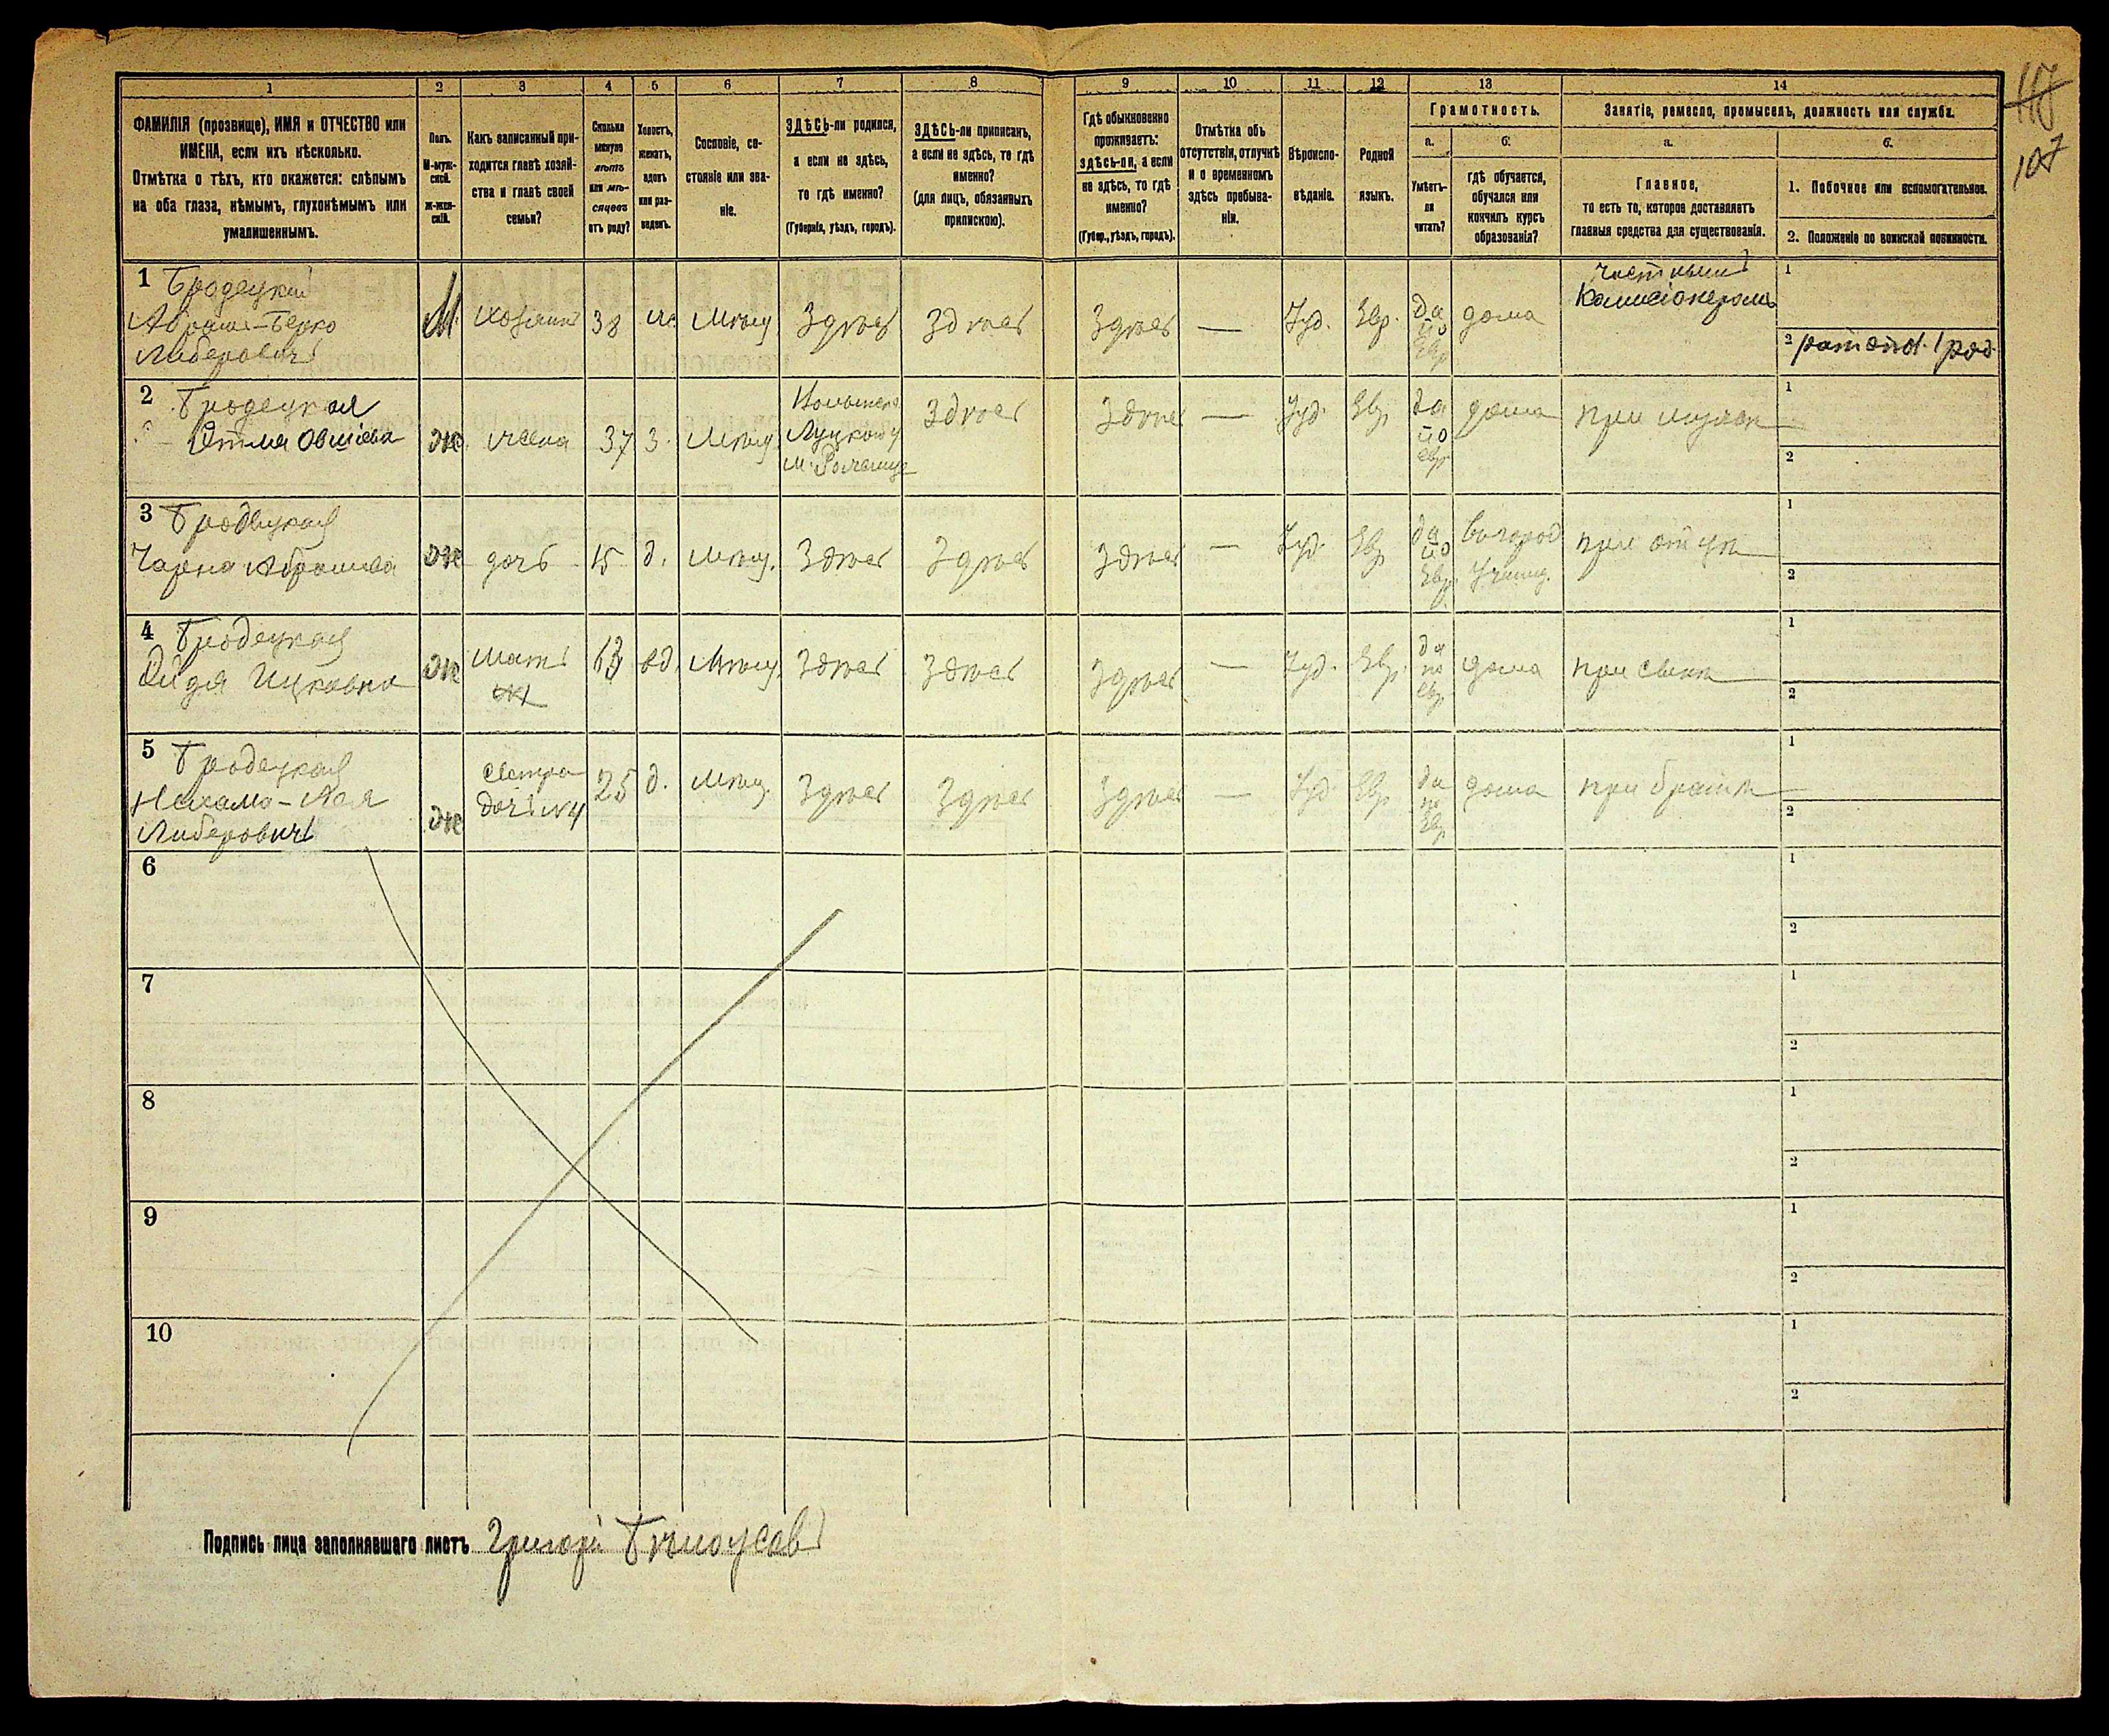 118
107
1 2 3 4 5 6 7 8 9 10 11 12 13 14
ФАМИЛІЯ (прозвище), ИМЯ и ОТЧЕСТВО или
ИМЕНА, если ихъ нѣсколько.
Отмѣтка о тѣхъ, кто окажется: слѣпымъ
на оба глаза, нѣмымъ, глухонѣмымъ или
умалишеннымъ.
Полъ.
М-муж-
ской.
ж-жен-
скій.
Какъ записанный при-
ходится главѣ хозяй-
ства и главѣ своей
семьи?
Сколько
минуло
лѣтъ
или мѣ-
сяцевъ
отъ роду?
Холостъ,
женатъ,
вдовъ
или раз-
веденъ.
Сословіе, со-
стояніе или зва-
ніе.
ЗДѢСЬ-ли родился,
а если не здѣсь,
то гдѣ именно?
(Губернія, уѣздъ, городъ).
ЗДѢСЬ-ли приписанъ,
а если не здѣсь, то гдѣ
именно?
(для лицъ, обязанныхъ
припискою).
Гдѣ обыкновенно
проживаетъ:
здѣсь-ли, а если
не здѣсь, то гдѣ
именно?
(Губер., уѣздъ, городъ).
Отмѣтка объ
отсутствіи, отлучкѣ
и о временномъ
здѣсь пребыва-
ніи.
Вѣроиспо-
вѣданіе.
Родной
языкъ.
Грамотность.
а.
Умѣетъ-
ли
читать?
б.
гдѣ обучается,
обучался или
кончилъ курсъ
образованія?
Занятіе, ремесло, промыселъ, должность или служба.
а.
Главное,
то есть то, которое доставляетъ
главныя средства для существованія.
б.
1. Побочное или вспомогательное.
2. Положеніе по воинской повинности.
1 Бродецкій
Абрамъ-Берко
Либеровичъ
М
хозяинъ
38
ж.
Мѣщ
Здѣсь
Здѣсь
Здѣсь
—
Іуд.
Евр.
да
по
Евр
дома
частнымъ
Комисіонеромъ
1
2 ратник. 1 раз.
2 Бродецкая
Этля Овшіева
ж
жена
37
з.
Мѣщ.
Волынск.
Луцкому
м. Рожищ
Здѣсь
Здѣсь
—
Іуд.
Евр
да
по
евр
дома
при мужѣ
1
2
3 Бродецкая
Чарна Абрамова
ж
дочь
15
д.
Мѣщ.
Здѣсь
Здѣсь
Здѣсь
—
Іуд.
Евр
да
по
Евр.
въ город
Училищ.
при отцѣ
1
2
4 Бродецкая
Ицковна
ж
мать
63
вд.
Мѣщ.
Здѣсь
Здѣсь
Здѣсь
—
Іуд.
Евр.
да
по
евр
дома
при сынѣ
1
2
5 Бродецкая
Нехама-Лея
Либеровичъ
ж
сестра
дочь №4
25
д.
Мѣщ.
Здѣсь
Здѣсь
Здѣсь
—
Іуд
Евр
да
по
Евр
дома
при братѣ
1
2
6
1
2
7
1
2
8
1
2
9
1
2
10
1
2
Подпись лица заполнявшаго листъ Григорій Бѣлоусовъ